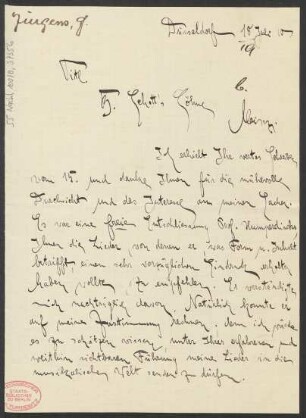 Jürgens, F.
Düsseldorf 18 Juli 10
Titl
B. Schott's Söhne
Mainz.
Ich erhielt Ihr wertes Schreiben
vom 15. und danke Ihnen für die mühevolle
Durchsicht und das Interesse an meinen Sachen.
Es war eine freie Entschliessung Prof. Humperdincks
Ihnen die Lieder, von denen er was Form u. Inhalt
betrifft, einen sehr vorzüglichen Eindruck erhalten
haben wollte, zu empfehlen. Er verständigte
mich nachträglich davon. Natürlich konnte er
auf meine Zustimmung rechnen, denn ich würde
es zu schätzen wissen, unter Ihrer erfahrenen und
weithin sichtbaren Führung meine Lieder in die
musikalische Welt senden zu dürfen.
STAATS-
BIBLIOTHEK
ZU BERLIN